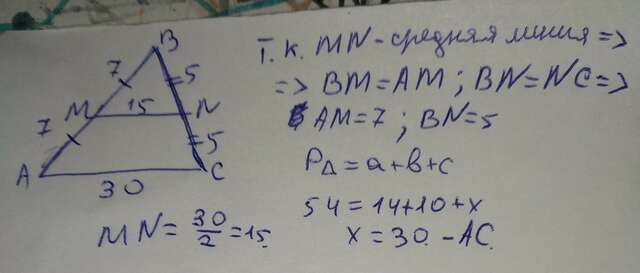 B
7
5
M
15
N
7
5
A
C
30
MN = 30/2 = 15
Т.к. MN - средняя линия =>
=> BM = AM ; BN = NC =>
AM = 7 ; BN = 5
P△ = a + b + c
54 = 14 + 10 + x
x = 30 - AC